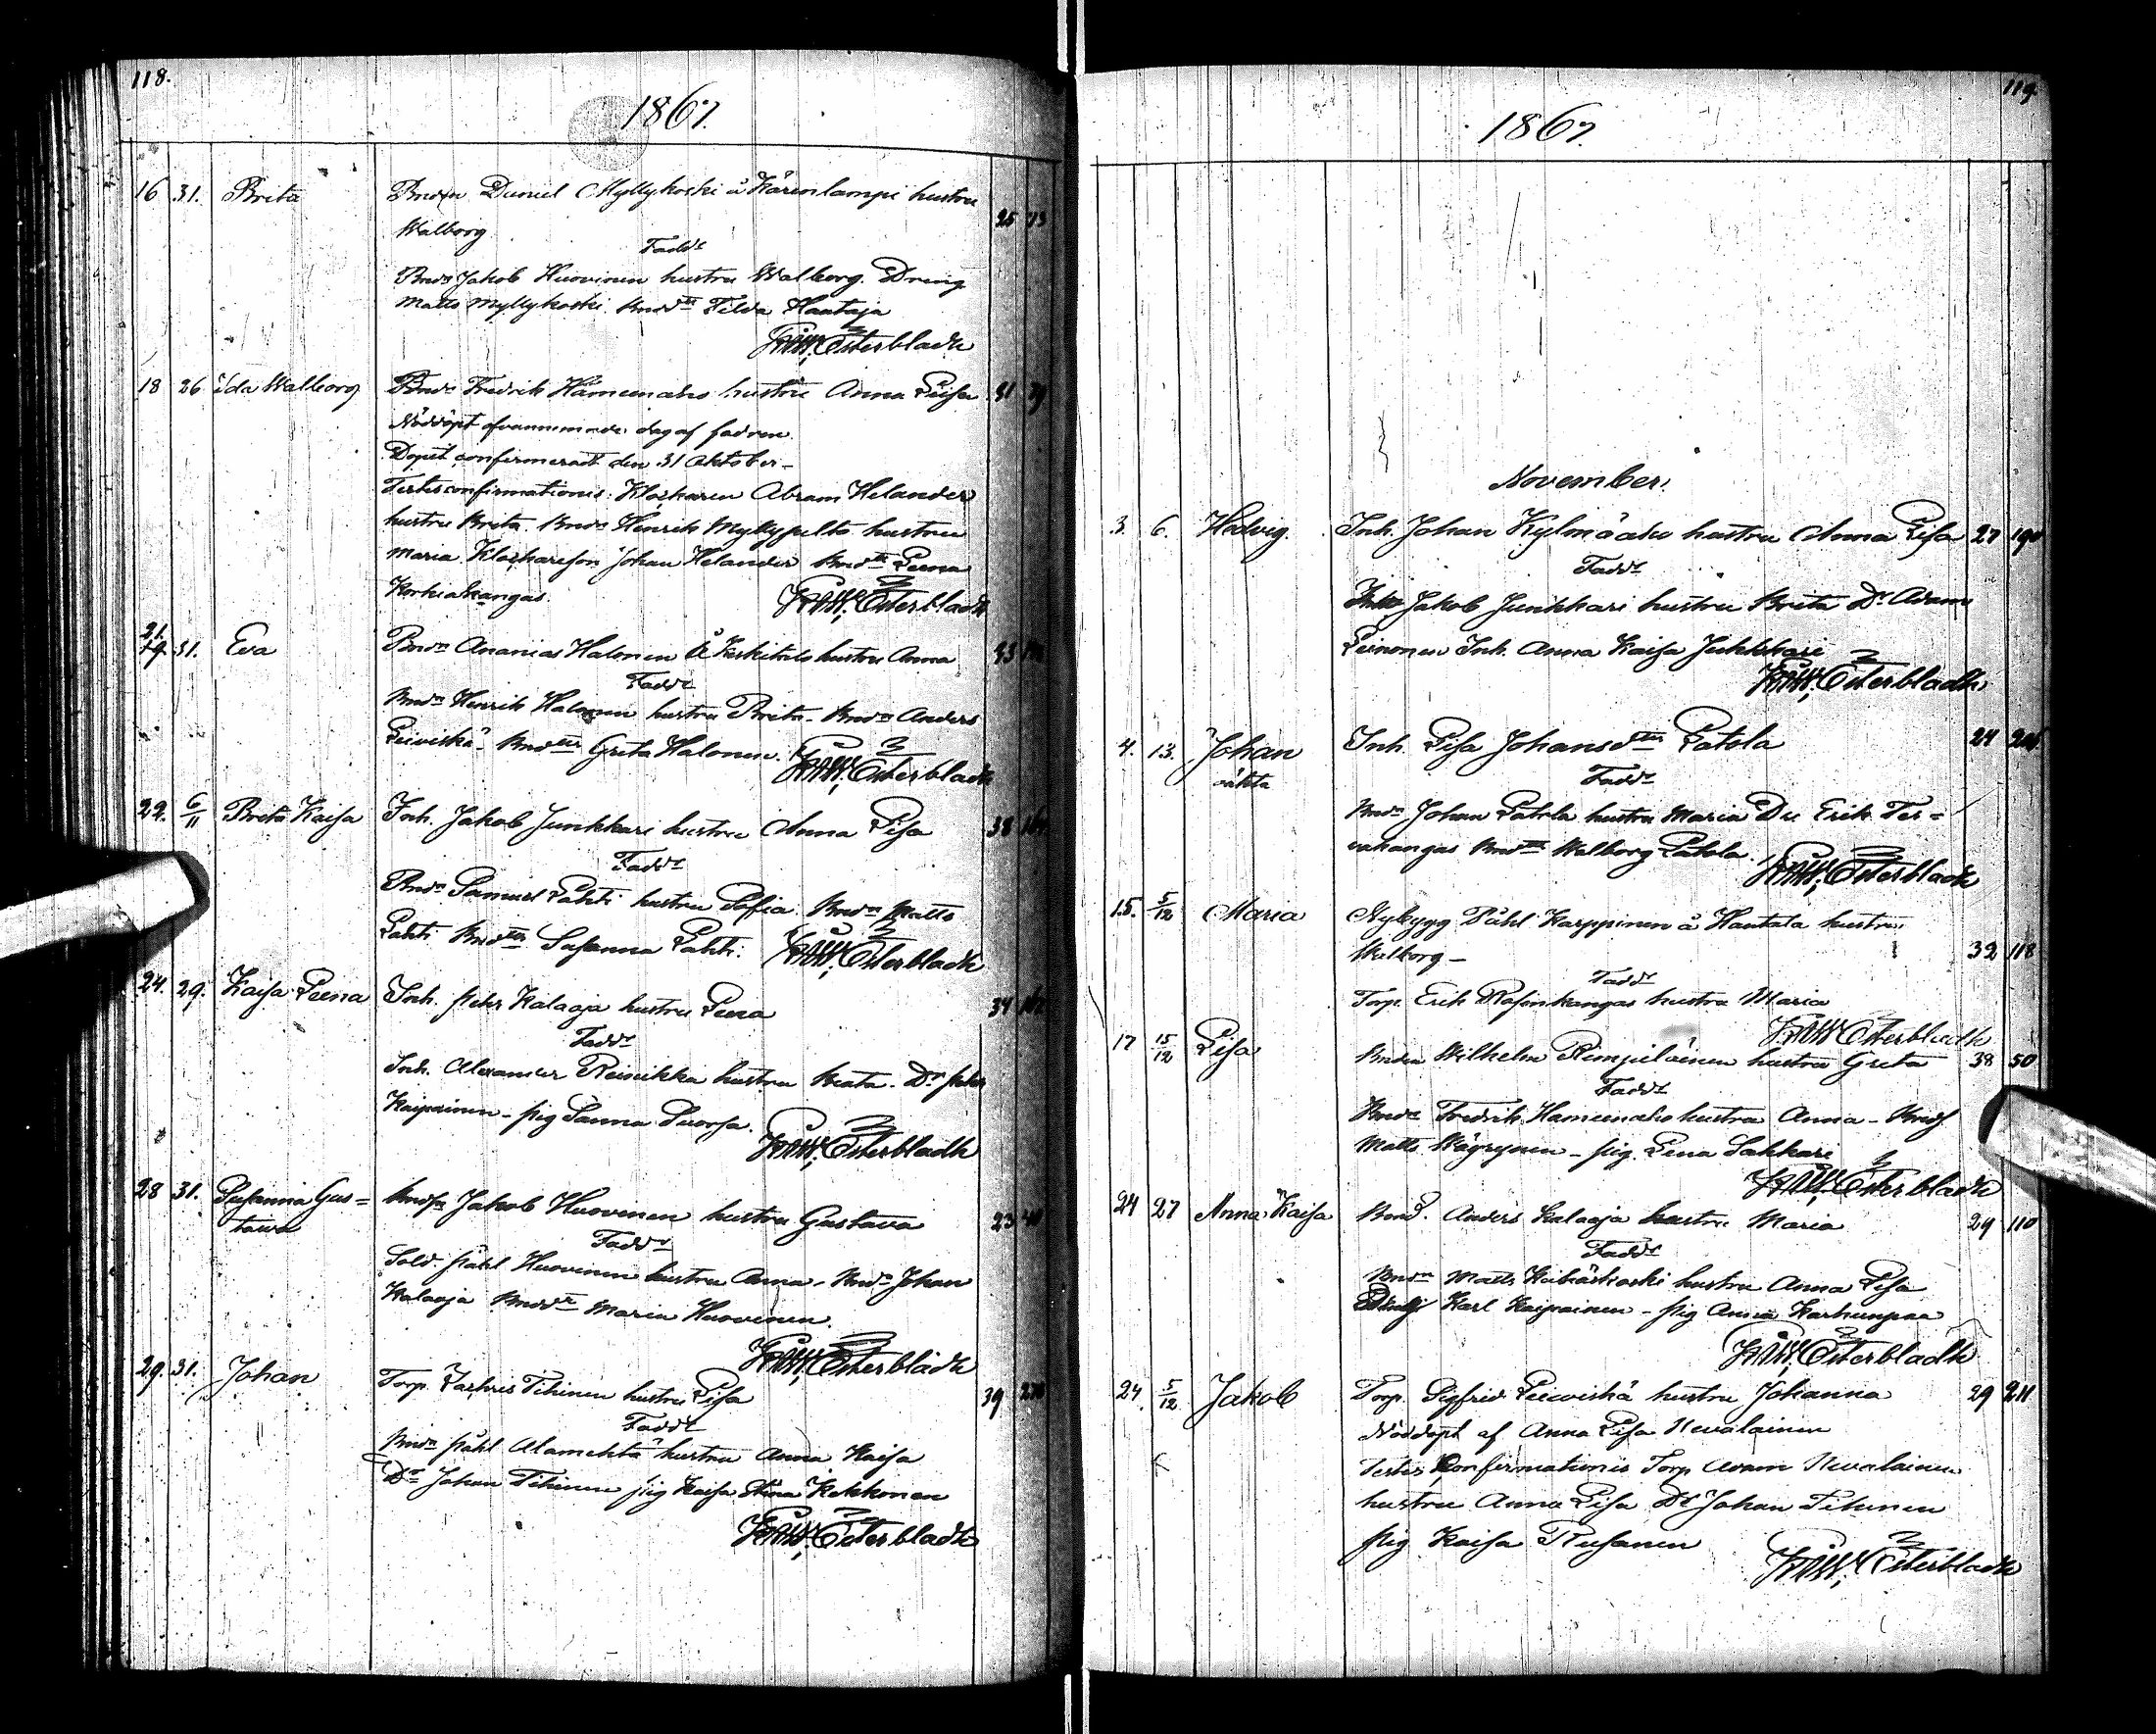 118.
1867.
16 31. Brita Bondn Daniel Myllykoski å Kärenlampi hustru
Walborg 25 73
Faddr
Bndn Jakob Huovinen hustru Walborg. Dreng
Matts Myllykoski. Bnddtr Tilda Hautaja
Österbladh
18 26 Ida Walborg Bndn Fredrik Hämeenaho hustru Anna Liisa 31 39
Nöddöpt ofvannämnde dag af fadren.
Dopet confirmeradt den 31 Oktober –
Testes confirmationis: Klockaren Abram Helander
hustru Brita. Bndn Henrik Myllypelto hustru
Maria Klockareson Johan Helander Bnddtr Leena
Korkiakangas.
Österbladh
21.
19. 31. Eva Bndn Ananias Halonen å Keskitalo hustru Anna 43
Faddr
Bndn Henrik Halonen hustru Brita – Bndn Anders
Leiviskä – Bnddtr Greta Halonen.
Österbladh
22. 6/11 Brita Kaisa Inh. Jakob Junkkari hustru Anna Lisa 38
Faddr
Bndn Samuel Lahti hustru Sofia. Bndn Matts
Lahti Bnddtr Susanna Lahti.
Österbladh
24. 29. Kaisa Leena Inh. Pehr Kalaaja hustru Leena 34
Faddr
Inh. Alexander hustru Beata. Dr Pehr
Kaipainen – pig Sanna Suorsa.
Österbladh
28 31. Susanna Gus=
tava Bndsn Jakob Huovinen hustru Gustava 23
Faddr
Sold. Påhl Huovinen hustru Anna – Bndn Johan
Kalaaja Bnddtr Maria Huovinen.
Österbladh
29. 31. Johan Torp. Zachris Tihinen hustru Lisa 39
Faddr
Bndn Påhl Alamehtä hustru Anna Kaisa
Dr Johan Tihinen pig Kaisa Stina Kekkonen
Österbladh
119.
1867.
November.
3. 6. Hedvig. Inh. Johan Kylmäaho hustru Anna Lisa 27 190
Faddr
Jakob Junkkari hustru Brita Dr Adam
Leinonen Inh. Anna Kaisa Junkkari
Österbladh
4. 13. Johan
oäkta Inh. Lisa Johansdtr Latola 24
Faddr
Bndn Johan Latola hustru Maria Dr Erik Ter=
vakangas Bnddtr Walborg Latola.
Österbladh
15. 5/12 Maria Nybygg Påhl Karppinen å Hautala hustru
Walborg – 32 118
Faddr
Torp. Erik Rasinkangas hustru Maria
Österbladh
17 15/12 Lisa Bndn Wilhelm Rimpiläinen hustru Greta 38 50
Faddr
Bndn Fredrik Hameenaho hustru Anna – Bnds
Matts Wäyrynen – pig Lena Sakkari
Österbladh
24 27 Anna Kaisa Bnd. Anders Kalaaja hustru Maria 29 110
Faddr
Bndn Matts hustru Anna Lisa
Karl Kaipainen – pig Anna Karhunpää
Österbladh
24. 5/12 Jakob Torp. Sigfrid Leiviskä hustru Johanna 29 211
Nöddöpt af Anna Lisa Nevalainen
Testes Confirmationis Torp. Adam Nevalainen
hustru Anna Lisa Dr Johan Tihinen
pig Kaisa Rusanen
Österbladh